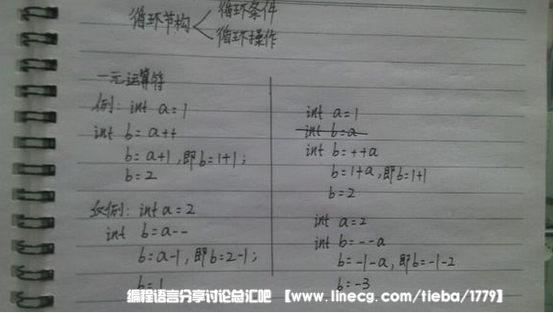 循环节构
循环条件
循环操作
一元运算符
例: int a=1
int b=a++
b=a+1,即b=1+1;
b=2
反例: int a=2
int b=a--
b=a-1,即b=2-1;
b=1
int a=1
int b=a
int b=++a
b=1+a,即b=1+1
b=2
int a=2
int b=--a
b=-1-a,即b=-1-2
b=-3
编程语言分享讨论总汇吧 【www.linecg.com/tieba/1779】